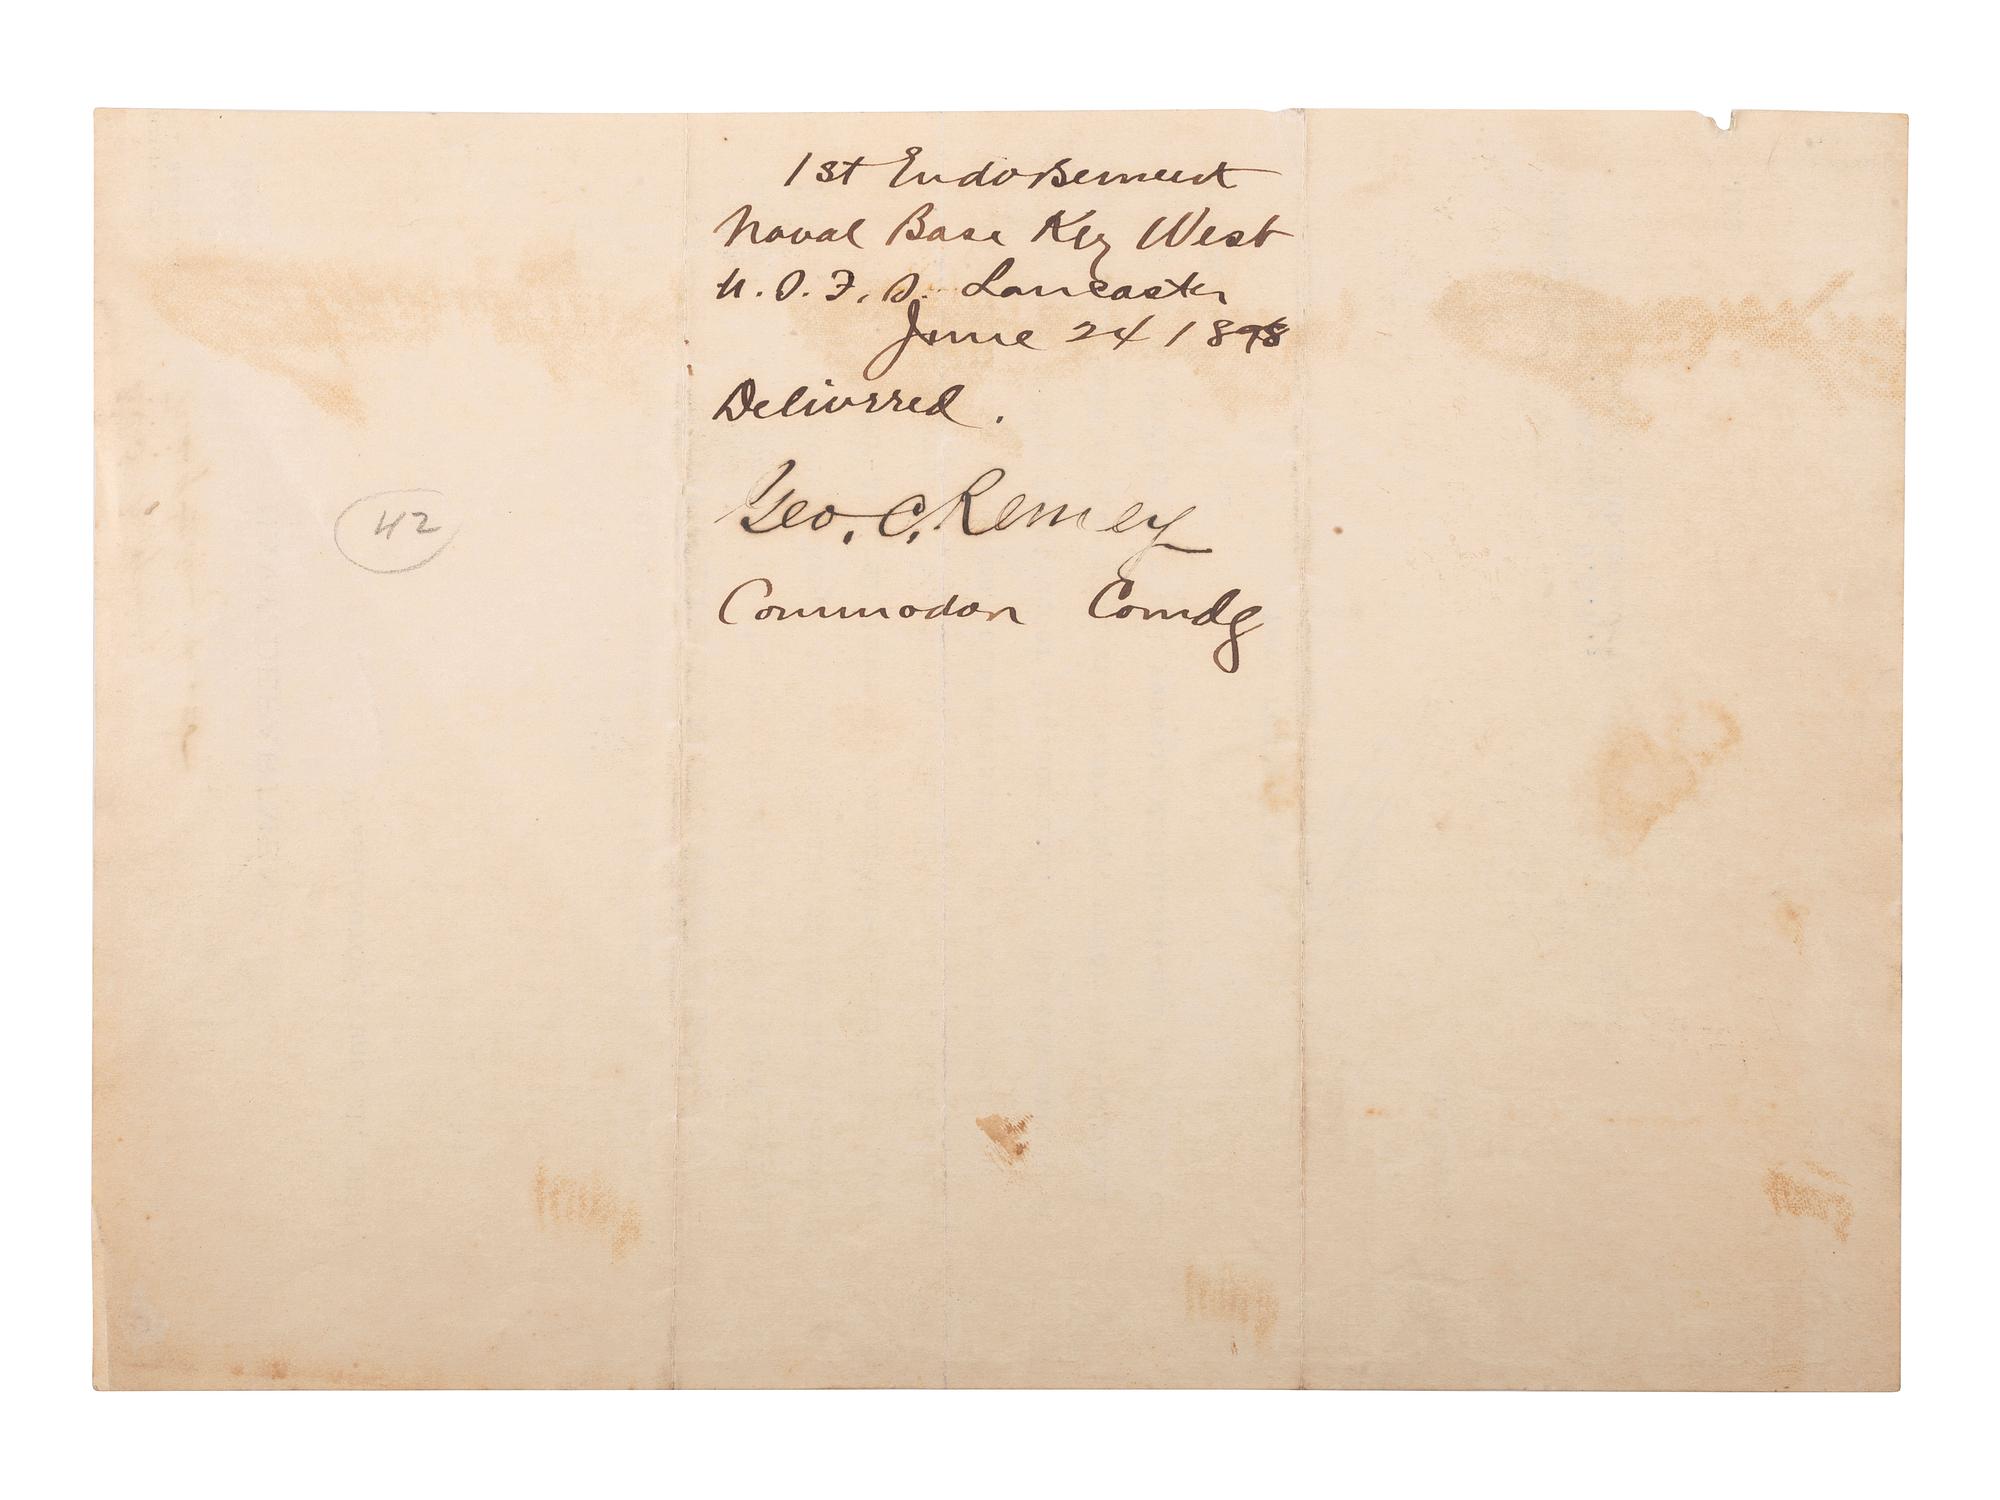 1st Endorsement
Naval Base Key West
U.S.F.S. Lancaster
June 24 1898
Delivered.
Geo. C. Remey
Commodore Comdg
42